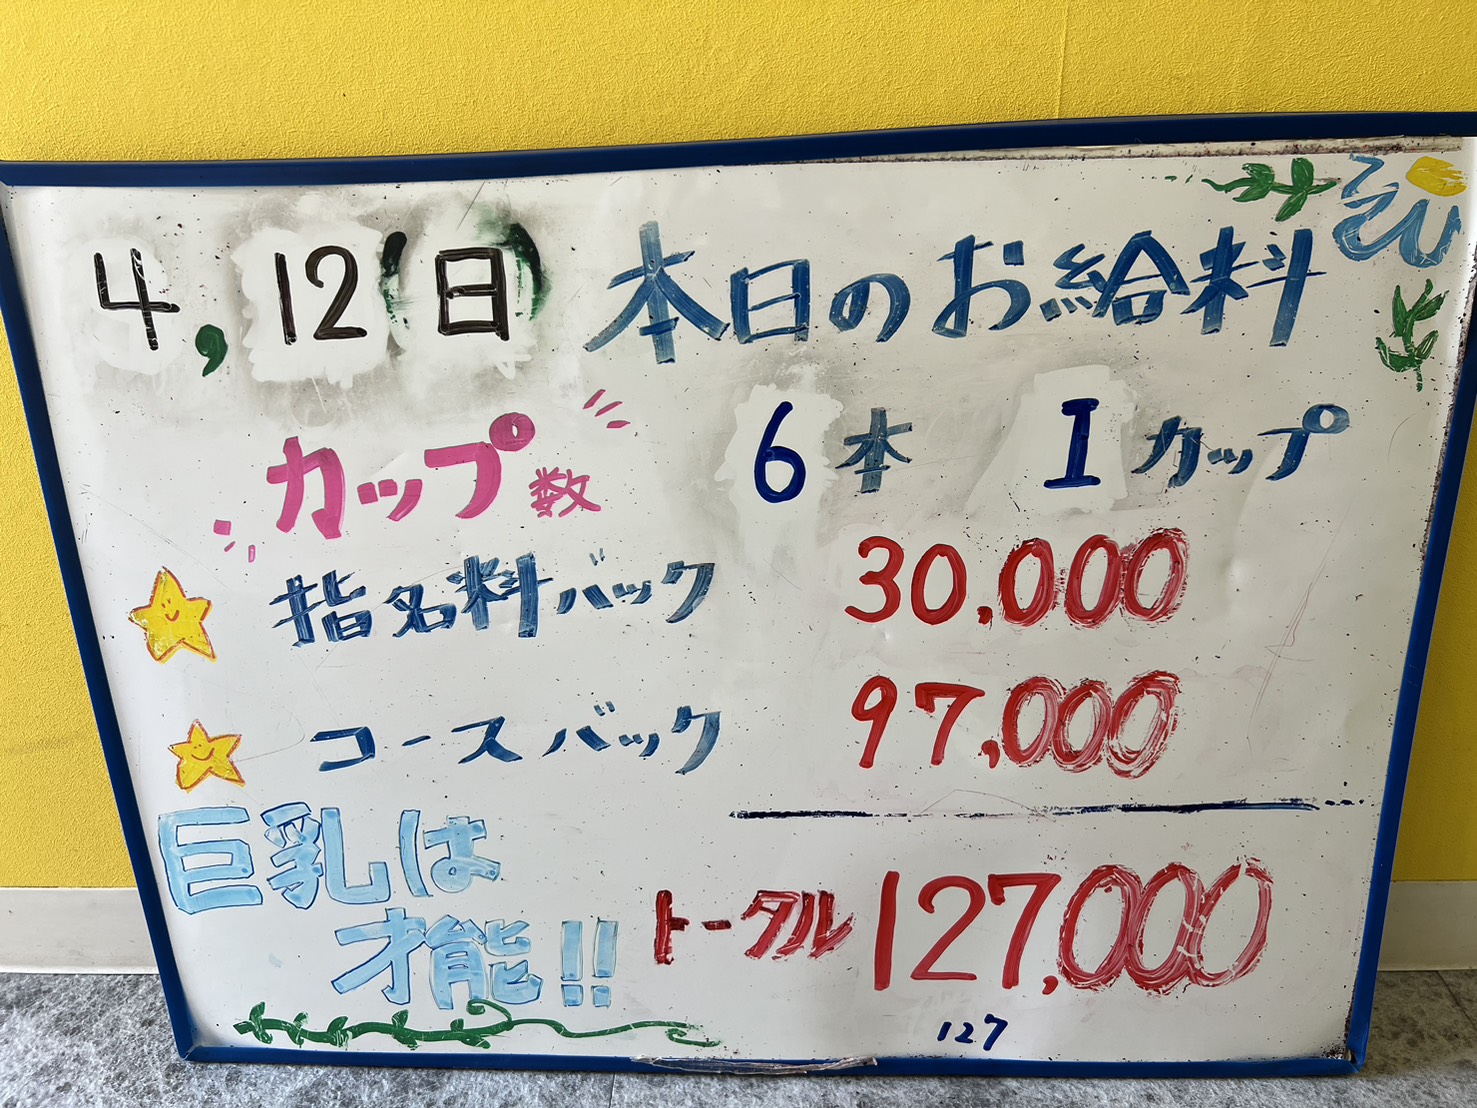 4,12(日) 本日のお給料
カップ数 6本 Iカップ
指名料バック 30,000
コースバック 97,000
巨乳は
才能!!
トータル 127,000
127